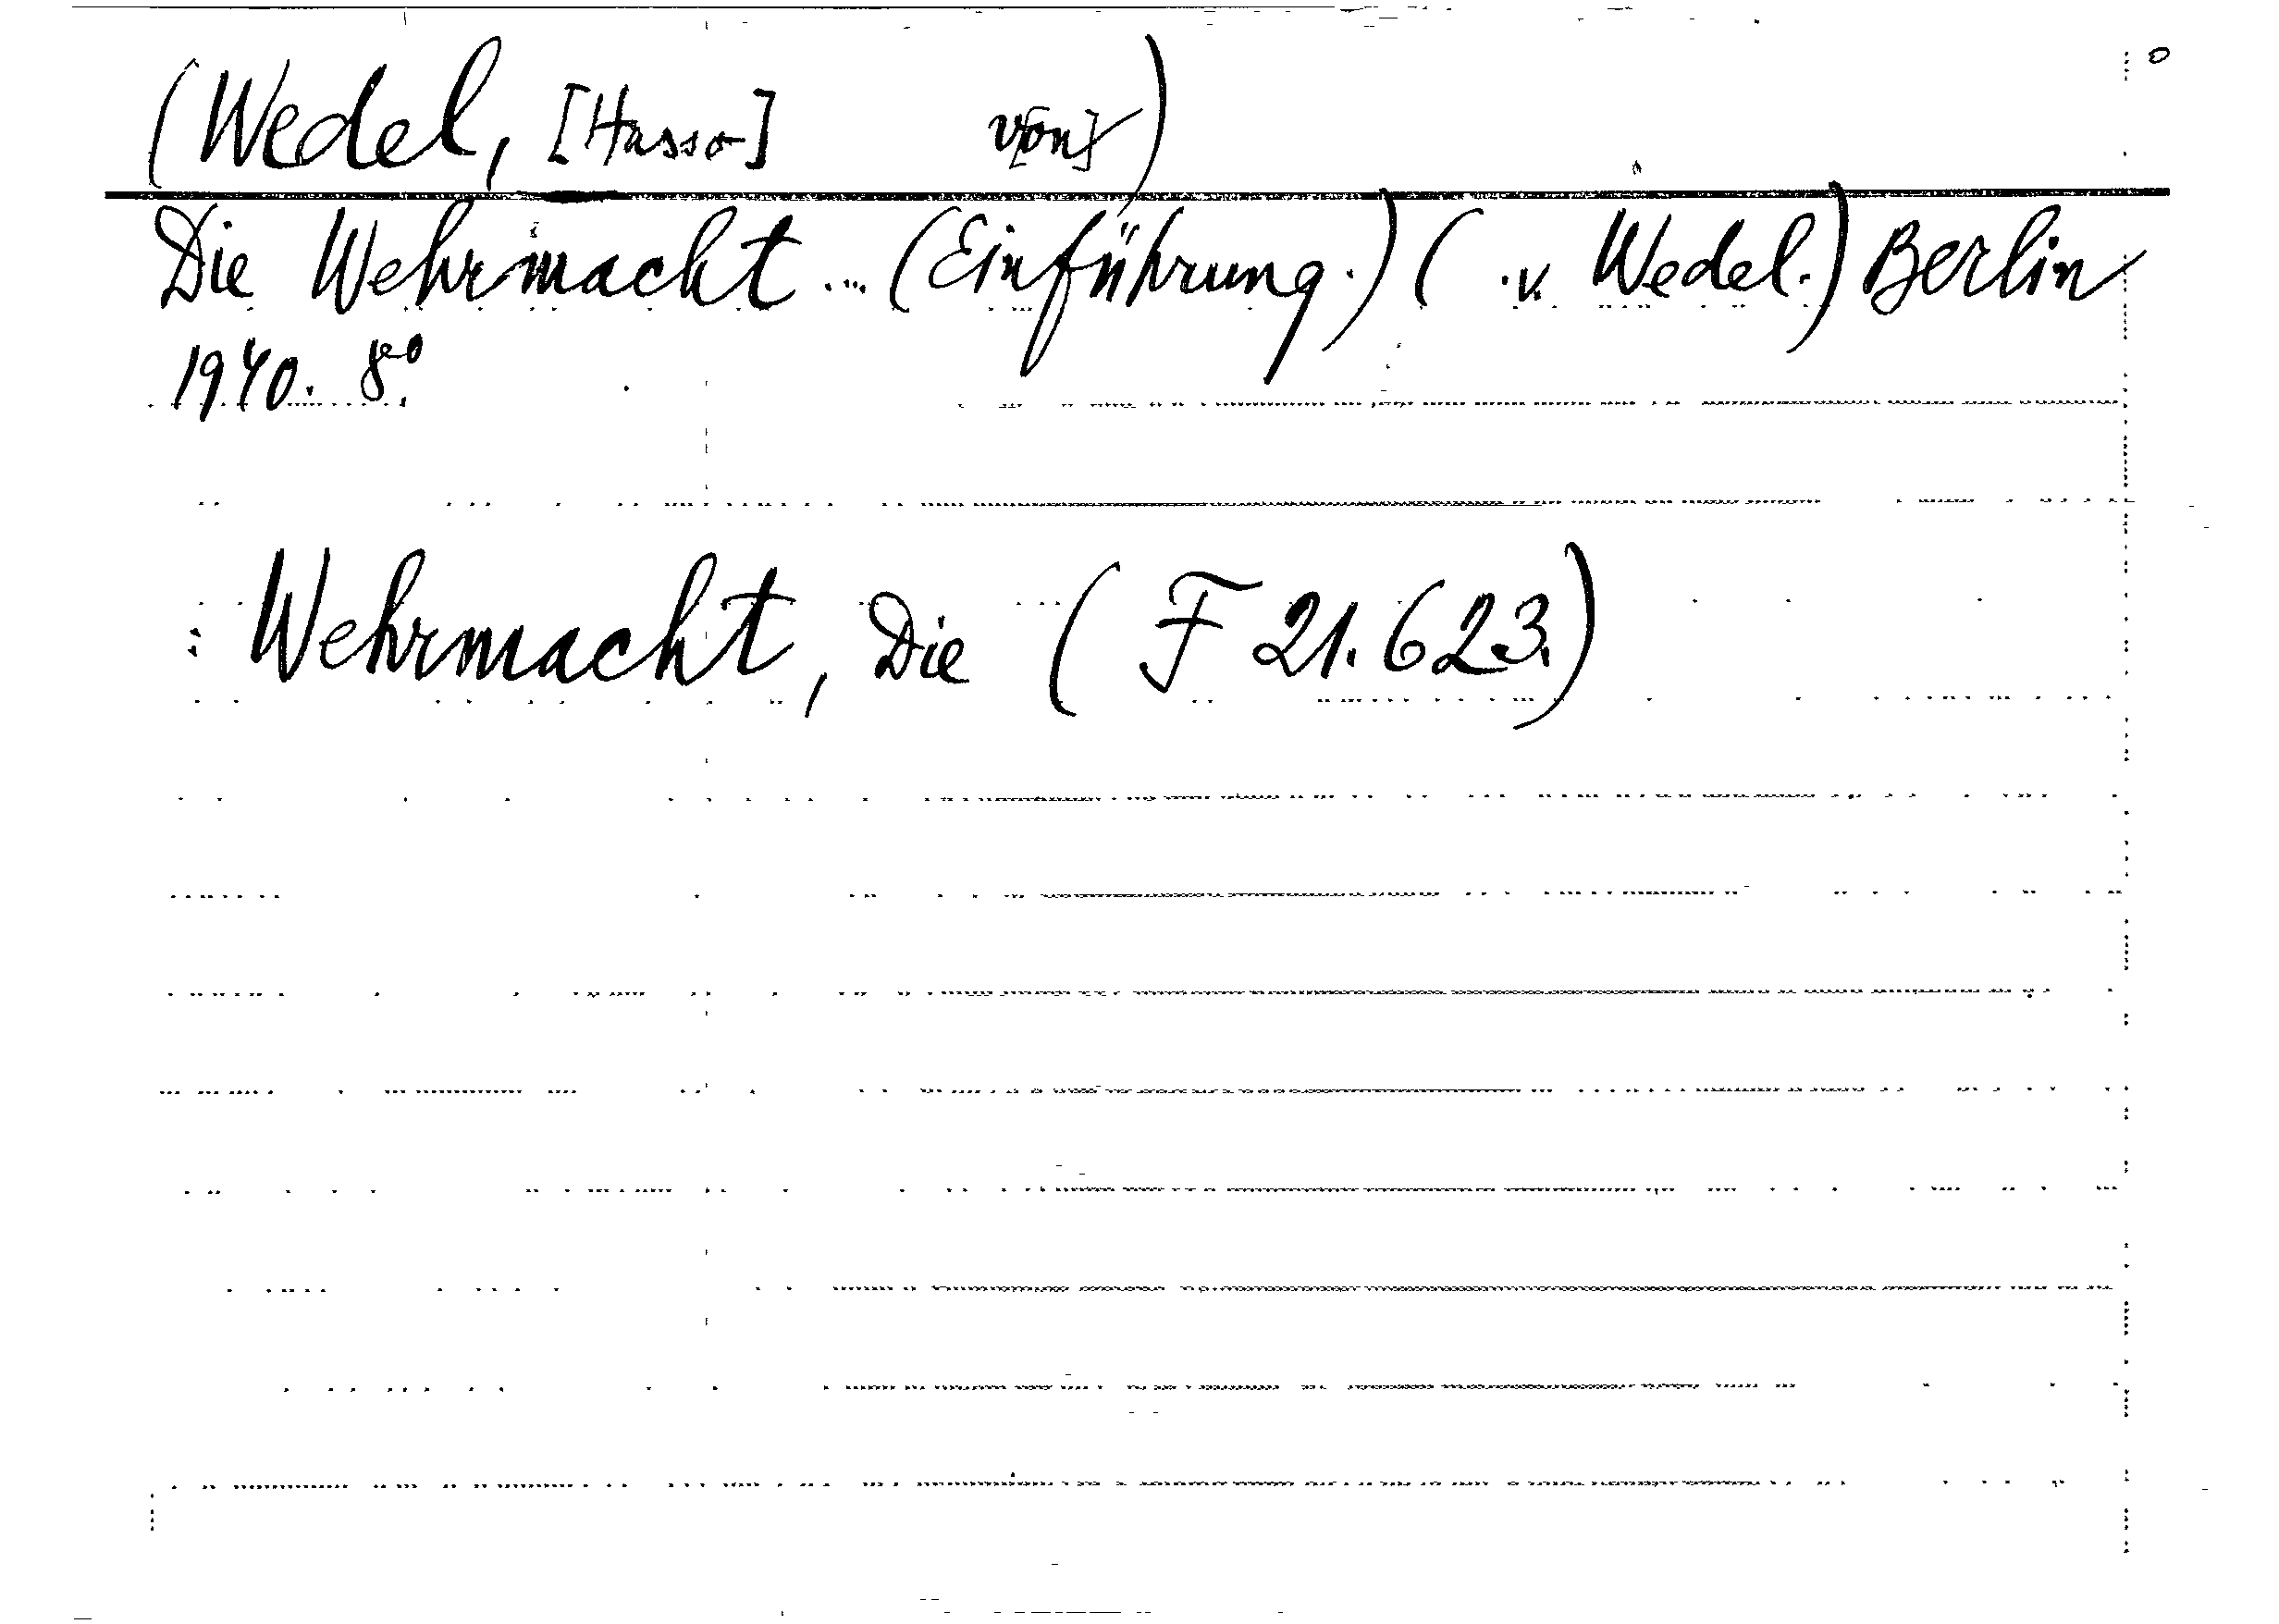 (Wedel, [Hasso] v[on])
Die Wehrmacht ... (Einführung.) ( .v. Wedel.) Berlin
1940. 8°.
: Wehrmacht, Die ( F 21.623.)